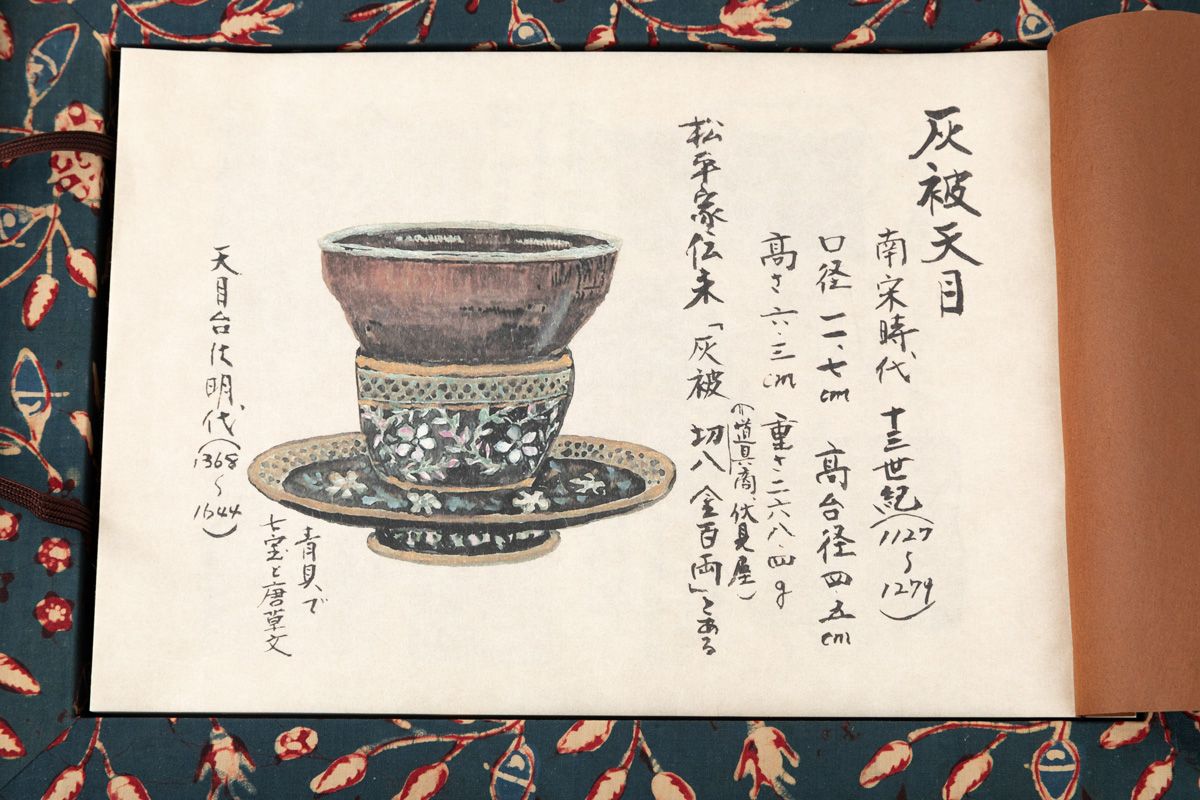 灰被天目
南宋時代 十三世紀(1127〜1279)
口径 一一、七cm 高台径四.五cm
高さ六.三cm 重さ二六八.四g
(道具商 伏見屋)
松平家伝来「灰被 切八 金百両」とある
天目台は明代(1368〜1644)
青貝で
七宝と唐草文